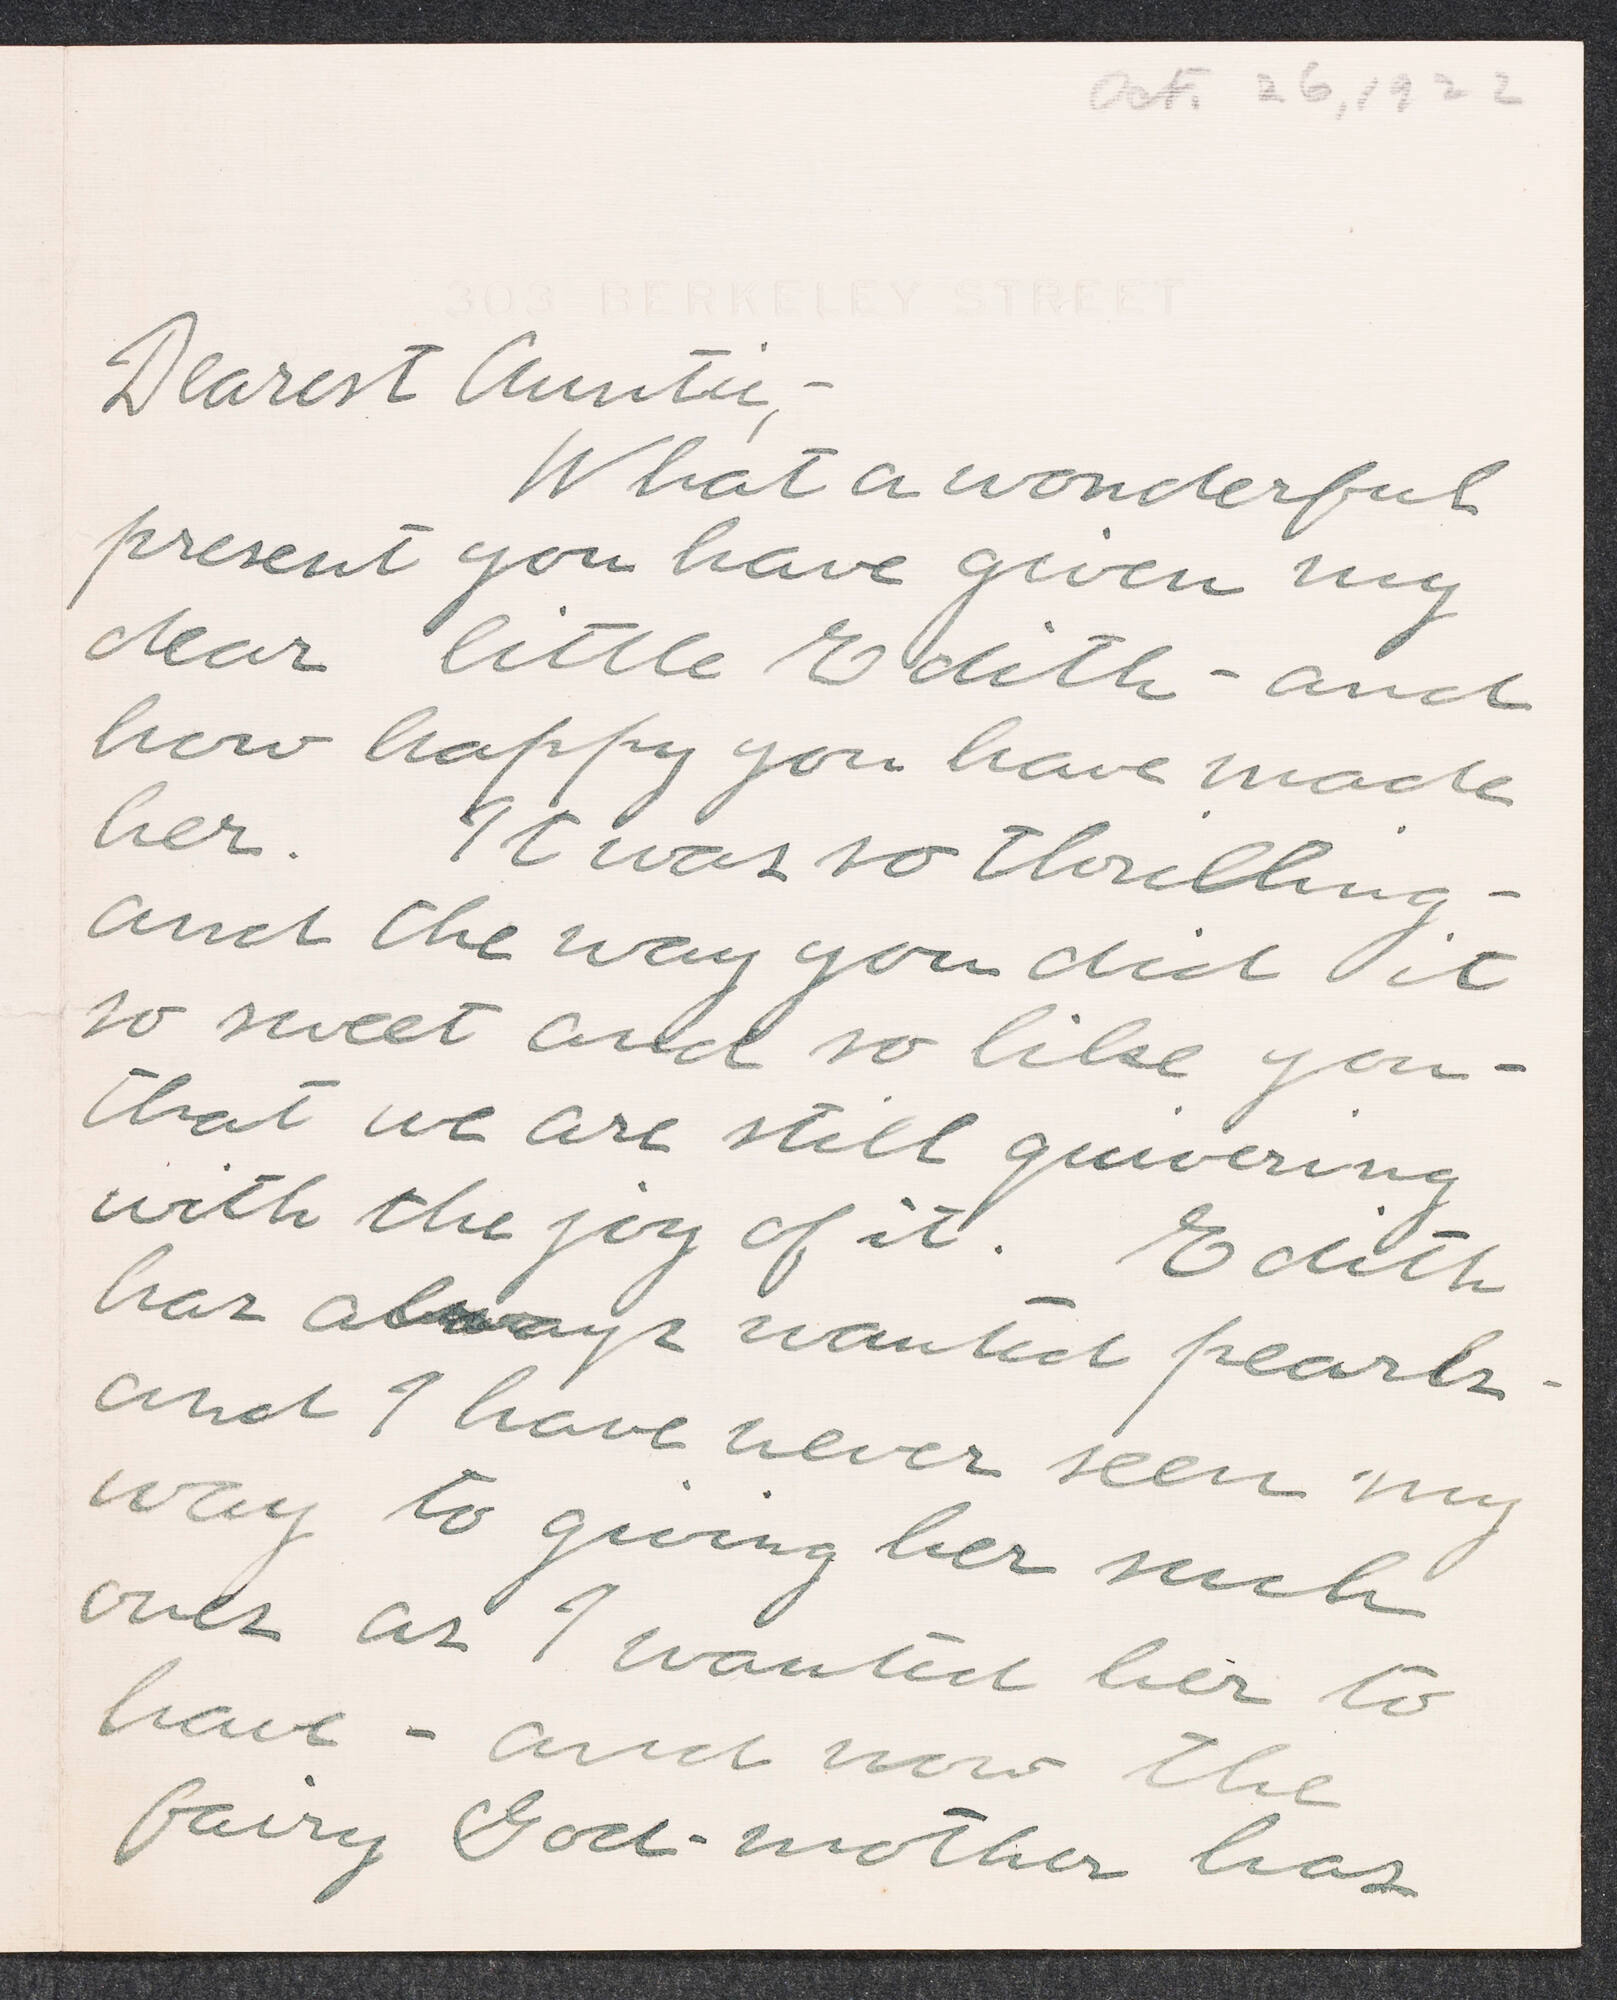 Oct. 26, 1922
303 BERKELEY STREET
Dearest Auntie,-
What a wonderful
present you have given my
dear little Edith - and
how happy you have made
her. It was so thrilling -
and the way you did it
so sweet and so like you -
that we are still quivering
with the joy of it. Edith
has always wanted pearls -
and I have never seen my
way to giving her such
ones as I wanted her to
have - and now the
fairy God-mother has